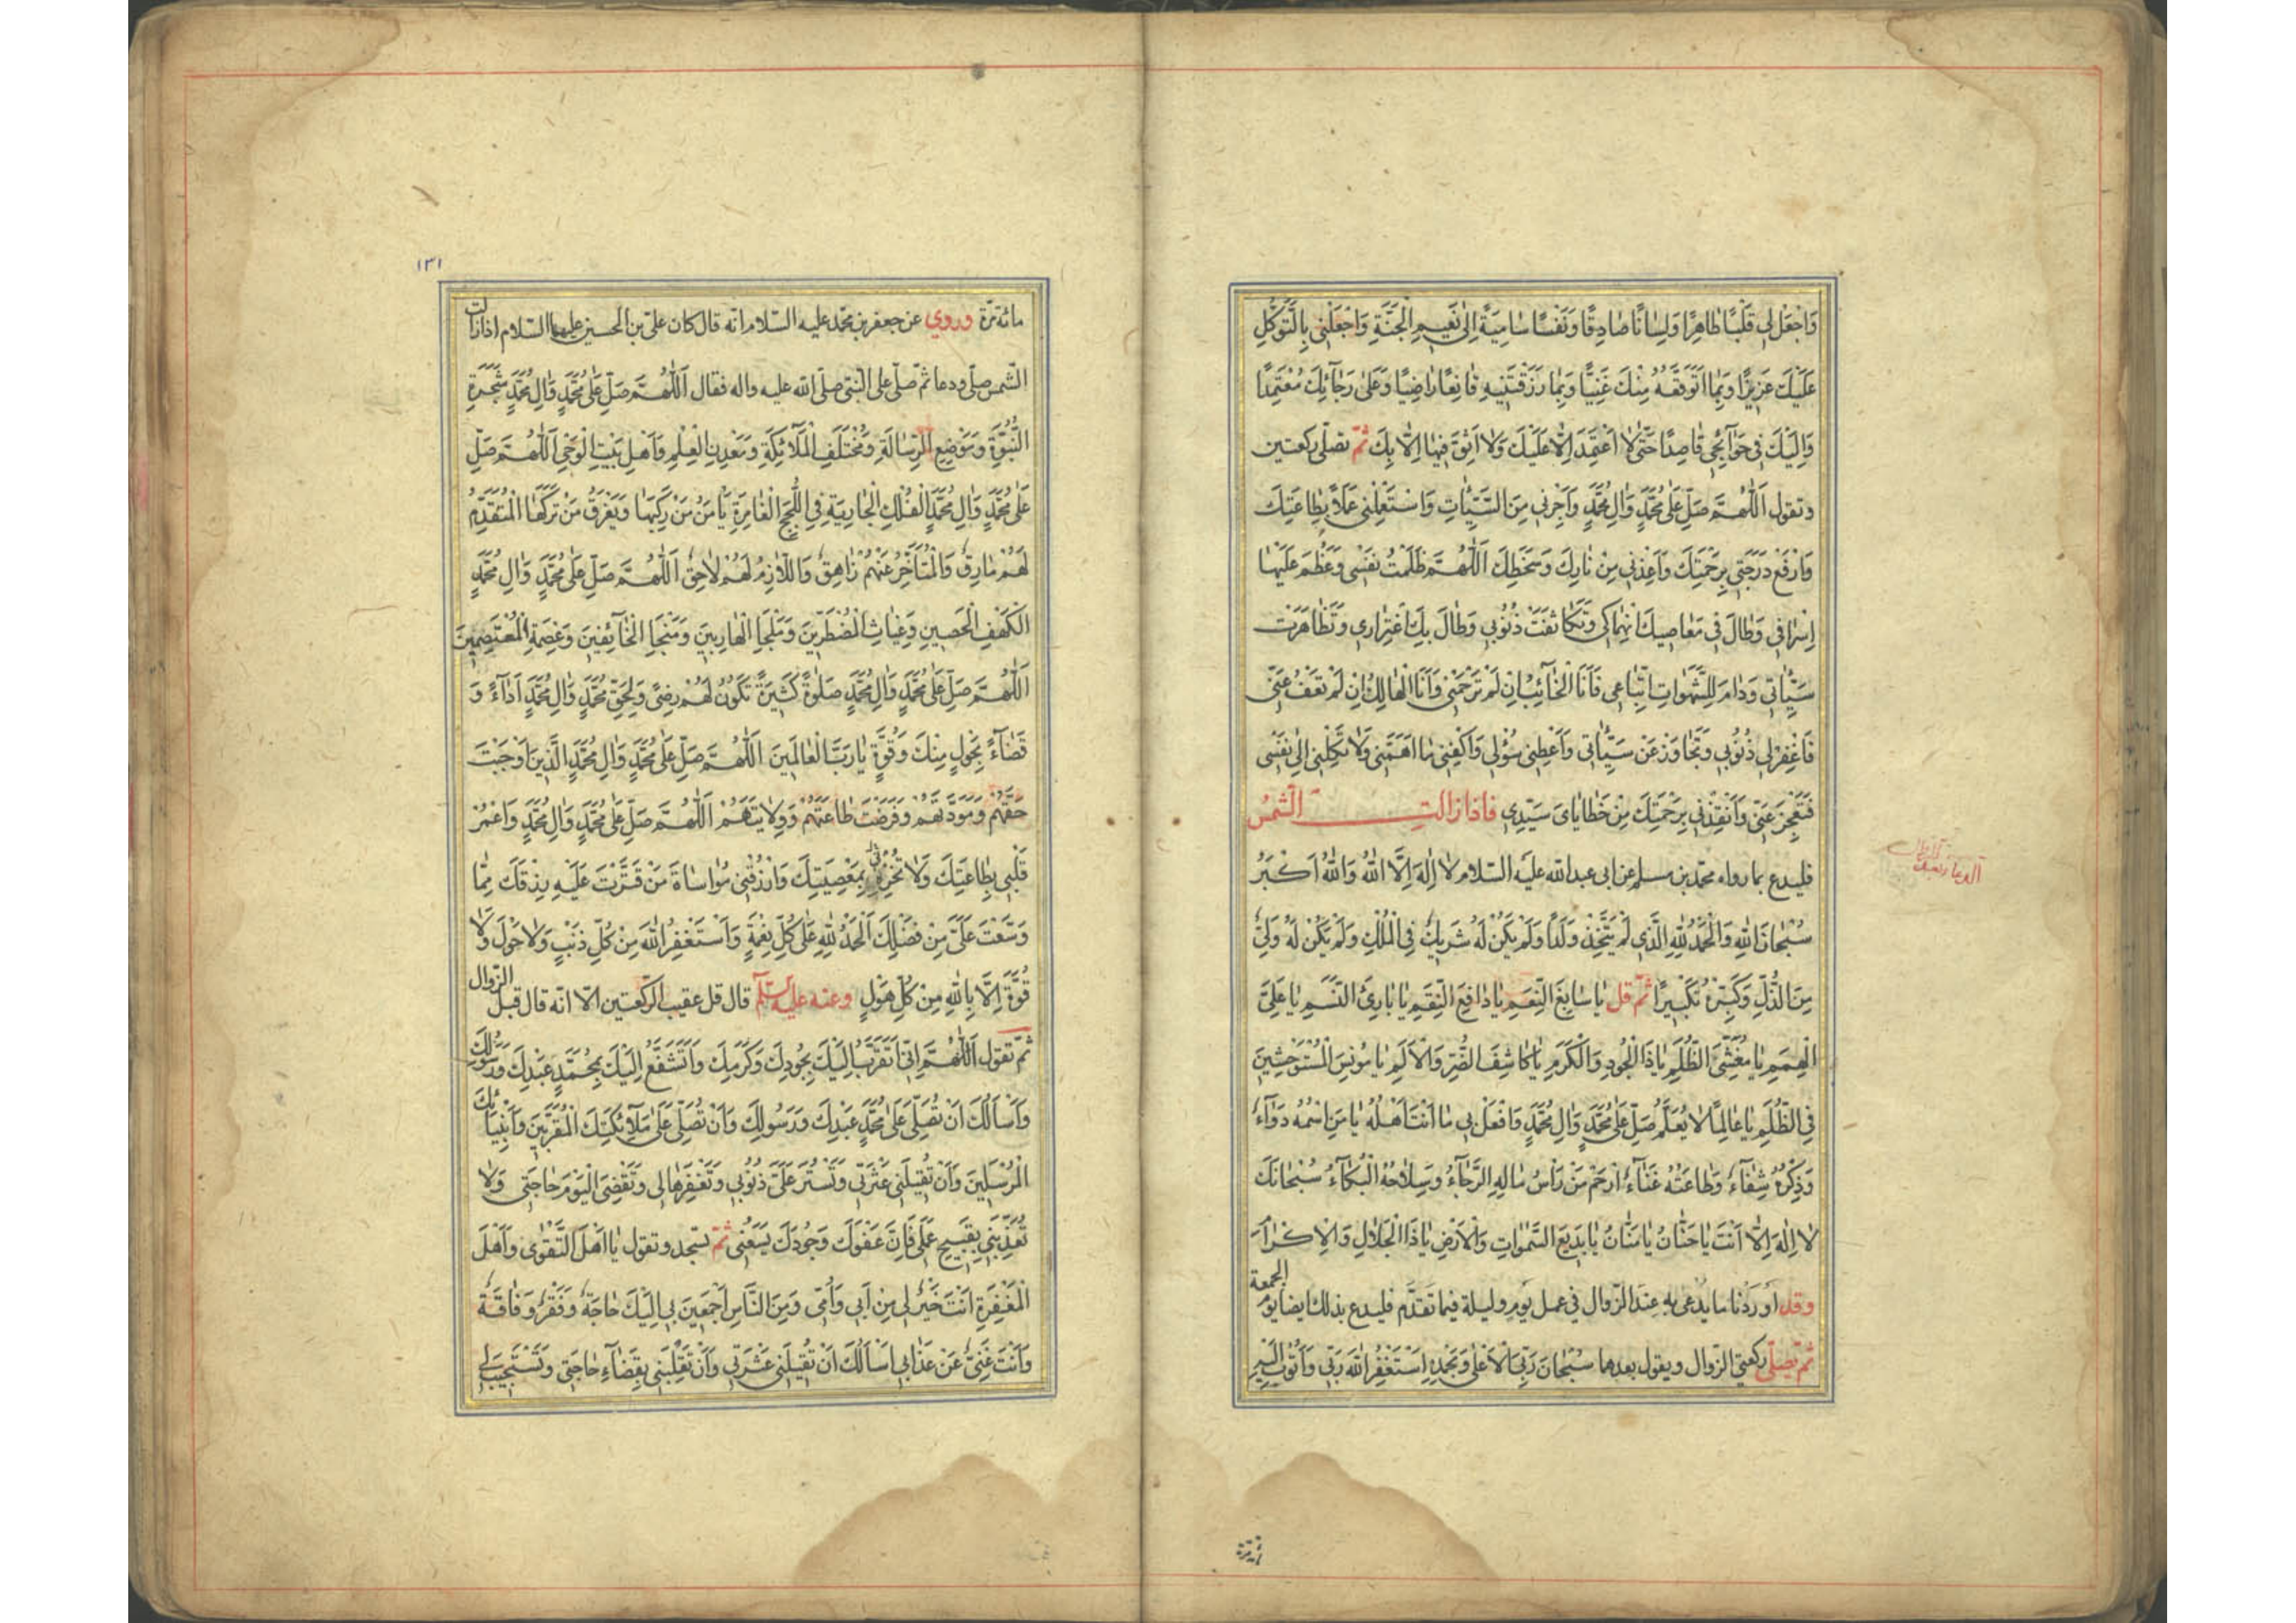 وَاجْعَلْ لِي قَلْبًا طَاهِرًا وَلِسَانًا صَادِقًا وَنَفْسًا سَامِيَةً إِلَى نَعِيمِ الْجَنَّةِ وَاجْعَلْنِي بِالتَّوَكُّلِ
عَلَيْكَ عَزِيزًا وَبِمَا أَتَوَقَّعُهُ مِنْكَ غَنِيًّا وَبِمَا رَزَقْتَنِيهِ قَانِعًا رَاضِيًا وَعَلَى رَجَائِكَ مُعْتَمِدًا
وَإِلَيْكَ فِي حَوَائِجِي قَاصِدًا حَتَّى لَا أَعْتَمِدَ إِلَّا عَلَيْكَ وَلَا أَثِقَ فِيهَا إِلَّا بِكَ ثمّ تصلّي ركعتين
وتقول اَللّٰهُمَّ صَلِّ عَلَى مُحَمَّدٍ وَآلِ مُحَمَّدٍ وَأَجِرْنِي مِنَ السَّيِّئَاتِ وَاسْتَعْمِلْنِي عَمَلًا بِطَاعَتِكَ
وَارْفَعْ دَرَجَتِي بِرَحْمَتِكَ وَأَعِذْنِي مِنْ نَارِكَ وَسَخَطِكَ اَللّٰهُمَّ ظَلَمْتُ نَفْسِي وَعَظُمَ عَلَيْهَا
إِسْرَافِي وَطَالَ فِي مَعَاصِيكَ انْهِمَاكِي وَتَكَاثَفَتْ ذُنُوبِي وَطَالَ بِكَ اغْتِرَارِي وَتَظَاهَرَتْ
سَيِّئَاتِي وَدَامَ لِلشَّهَوَاتِ اتِّبَاعِي فَأَنَا الْخَائِبُ إِنْ لَمْ تَرْحَمْنِي وَأَنَا الْهَالِكُ إِنْ لَمْ تَعْفُ عَنِّي
فَاغْفِرْ لِي ذُنُوبِي وَتَجَاوَزْ عَنْ سَيِّئَاتِي وَأَعْطِنِي سُؤْلِي وَاكْفِنِي مَا أَهَمَّنِي وَلَا تَكِلْنِي إِلَى نَفْسِي
فَتَعْجِزَ عَنِّي وَأَنْقِذْنِي بِرَحْمَتِكَ مِنْ خَطَايَايَ سَيِّدِي فاذا زالت الشّمس
فليدع بما رواه محمّد بن مسلم عن ابي عبد الله عليه السلام لَا إِلٰهَ إِلَّا اللّٰهُ وَاللّٰهُ أَكْبَرُ
سُبْحَانَ اللّٰهِ وَالْحَمْدُ لِلّٰهِ الَّذِي لَمْ يَتَّخِذْ وَلَدًا وَلَمْ يَكُنْ لَهُ شَرِيكٌ فِي الْمُلْكِ وَلَمْ يَكُنْ لَهُ وَلِيٌّ
مِنَ الذُّلِّ وَكَبِّرْهُ تَكْبِيرًا ثمّ قل يَا سَابِغَ النِّعَمِ يَا دَافِعَ النِّقَمِ يَا بَارِئَ النَّسَمِ يَا عَلِيَّ
الْهِمَمِ يَا مُغَشِّيَ الظُّلَمِ يَا ذَا الْجُودِ وَالْكَرَمِ يَا كَاشِفَ الضُّرِّ وَالْأَلَمِ يَا مُونِسَ الْمُسْتَوْحِشِينَ
فِي الظُّلَمِ يَا عَالِمًا لَا يُعَلَّمُ صَلِّ عَلَى مُحَمَّدٍ وَآلِ مُحَمَّدٍ وَافْعَلْ بِي مَا أَنْتَ أَهْلُهُ يَا مَنِ اسْمُهُ دَوَاءٌ
وَذِكْرُهُ شِفَاءٌ وَطَاعَتُهُ غَنَاءٌ ارْحَمْ مَنْ رَأْسُ مَالِهِ الرَّجَاءُ وَسِلَاحُهُ الْبُكَاءُ سُبْحَانَكَ
لَا إِلٰهَ إِلَّا أَنْتَ يَا حَنَّانُ يَا مَنَّانُ يَا بَدِيعَ السَّمٰوَاتِ وَالْأَرْضِ يَا ذَا الْجَلَالِ وَالْإِكْرَامِ
وقد أوردنا ما يدعى به عند الزوال في عمل يوم وليلة فيما تقدّم فليدع بذلك ايضا يوم الجمعة
ثمّ تصلّي ركعتي الزوال ويقول بعدهما سُبْحَانَ رَبِّيَ الْأَعْلَى وَبِحَمْدِهِ أَسْتَغْفِرُ اللّٰهَ رَبِّي وَأَتُوبُ إِلَيْهِ
١٣١
مائة مرّة وروي عن جعفر بن محمّد عليه السّلام انّه قال كان عليّ بن الحسين عليهما السّلام اذا زالت
الشّمس صلّى ودعا ثمّ صلّى على النّبيّ صلّى الله عليه واله فقال اَللّٰهُمَّ صَلِّ عَلَى مُحَمَّدٍ وَآلِ مُحَمَّدٍ شَجَرَةِ
النُّبُوَّةِ وَمَوْضِعِ الرِّسَالَةِ وَمُخْتَلَفِ الْمَلَائِكَةِ وَمَعْدِنِ الْعِلْمِ وَأَهْلِ بَيْتِ الْوَحْيِ اَللّٰهُمَّ صَلِّ
عَلَى مُحَمَّدٍ وَآلِ مُحَمَّدٍ الْفُلْكِ الْجَارِيَةِ فِي اللُّجَجِ الْغَامِرَةِ يَأْمَنُ مَنْ رَكِبَهَا وَيَغْرَقُ مَنْ تَرَكَهَا الْمُتَقَدِّمُ
لَهُمْ مَارِقٌ وَالْمُتَأَخِّرُ عَنْهُمْ زَاهِقٌ وَاللَّازِمُ لَهُمْ لَاحِقٌ اَللّٰهُمَّ صَلِّ عَلَى مُحَمَّدٍ وَآلِ مُحَمَّدٍ
الْكَهْفِ الْحَصِينِ وَغِيَاثِ الْمُضْطَرِّينَ وَمَلْجَإِ الْهَارِبِينَ وَمَنْجَا الْخَائِفِينَ وَعِصْمَةِ الْمُعْتَصِمِينَ
اَللّٰهُمَّ صَلِّ عَلَى مُحَمَّدٍ وَآلِ مُحَمَّدٍ صَلٰوةً كَثِيرَةً تَكُونُ لَهُمْ رِضًى وَلِحَقِّ مُحَمَّدٍ وَآلِ مُحَمَّدٍ أَدَاءً وَ
قَضَاءً بِحَوْلٍ مِنْكَ وَقُوَّةٍ يَا رَبَّ الْعَالَمِينَ اَللّٰهُمَّ صَلِّ عَلَى مُحَمَّدٍ وَآلِ مُحَمَّدٍ الَّذِينَ أَوْجَبْتَ
حَقَّهُمْ وَمَوَدَّتَهُمْ وَفَرَضْتَ طَاعَتَهُمْ وَوِلَايَتَهُمْ اَللّٰهُمَّ صَلِّ عَلَى مُحَمَّدٍ وَآلِ مُحَمَّدٍ وَاعْمُرْ
قَلْبِي بِطَاعَتِكَ وَلَا تُخْزِنِي بِمَعْصِيَتِكَ وَارْزُقْنِي مُوَاسَاةَ مَنْ قَتَّرْتَ عَلَيْهِ رِزْقَكَ مِمَّا
وَسَّعْتَ عَلَيَّ مِنْ فَضْلِكَ اَلْحَمْدُ لِلّٰهِ عَلَى كُلِّ نِعْمَةٍ وَأَسْتَغْفِرُ اللّٰهَ مِنْ كُلِّ ذَنْبٍ وَلَا حَوْلَ وَلَا
قُوَّةَ إِلَّا بِاللّٰهِ مِنْ كُلِّ هَوْلٍ وعنه عليه السّلم قال قل عقيب الركعتين الّا انّه قال قبل الزوال
ثمّ تقول اَللّٰهُمَّ إِنِّي أَتَقَرَّبُ إِلَيْكَ بِجُودِكَ وَكَرَمِكَ وَأَتَشَفَّعُ إِلَيْكَ بِمُحَمَّدٍ عَبْدِكَ وَرَسُولِكَ
وَأَسْأَلُكَ أَنْ تُصَلِّيَ عَلَى مُحَمَّدٍ عَبْدِكَ وَرَسُولِكَ وَأَنْ تُصَلِّيَ عَلَى مَلَائِكَتِكَ الْمُقَرَّبِينَ وَأَنْبِيَائِكَ
الْمُرْسَلِينَ وَأَنْ تُقِيلَنِي عَثْرَتِي وَتَسْتُرَ عَلَيَّ ذُنُوبِي وَتَغْفِرَهَا لِي وَتَقْضِيَ الْيَوْمَ حَاجَتِي وَلَا
تُعَذِّبَنِي بِقَبِيحِ عَمَلِي فَإِنَّ عَفْوَكَ وَجُودَكَ يَسَعُنِي ثمّ تسجد وتقول يَا أَهْلَ التَّقْوَى وَأَهْلَ
الْمَغْفِرَةِ أَنْتَ خَيْرٌ لِي مِنْ أَبِي وَأُمِّي وَمِنَ النَّاسِ أَجْمَعِينَ بِي إِلَيْكَ حَاجَةٌ وَفَقْرٌ وَفَاقَةٌ
وَأَنْتَ غَنِيٌّ عَنْ عَذَابِي أَسْأَلُكَ أَنْ تُقِيلَنِي عَثْرَتِي وَأَنْ تَقْلِبَنِي بِقَضَاءِ حَاجَتِي وَتَسْتَجِيبَ لِي